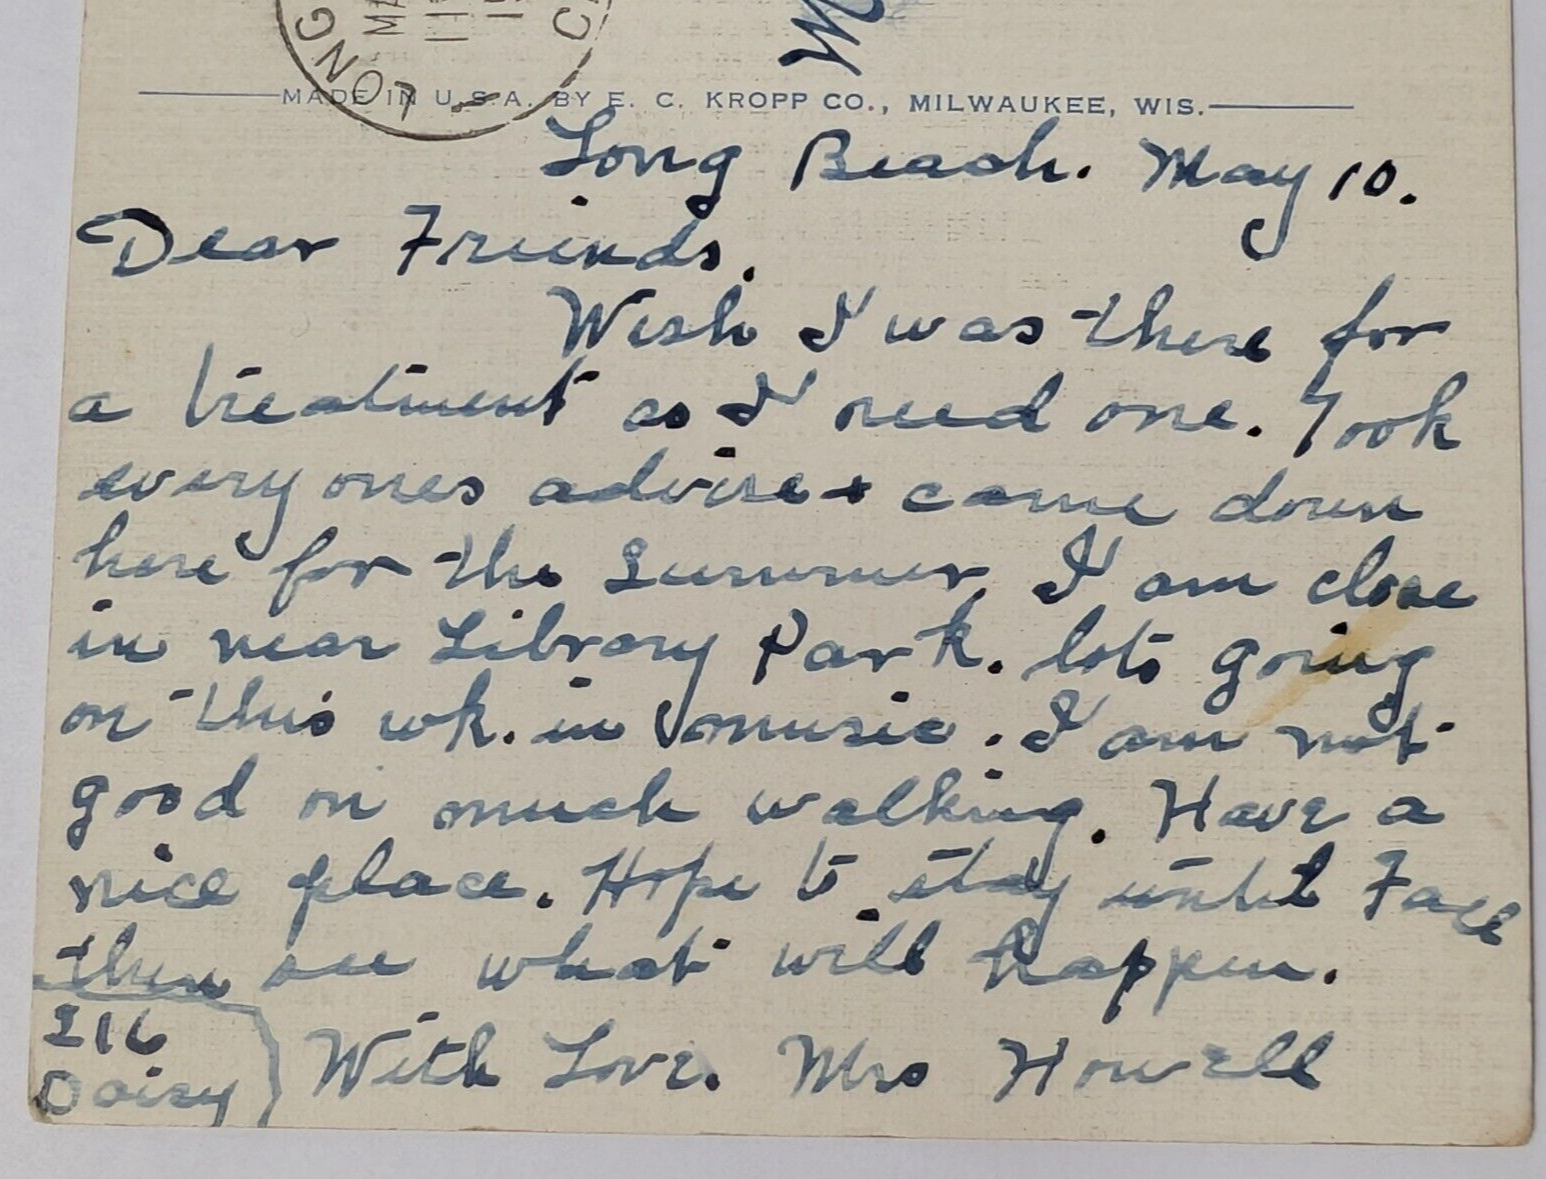 LONG
MADE IN U.S.A. BY E. C. KROPP CO., MILWAUKEE, WIS.
Long Beach. May 10.
Dear Friends.
Wish I was there for
a treatment as I need one. Took
every ones advise + came down
here for the Summer. I am close
in near Library Park. lots going
on this wk. in music. I am not
good on much walking. Have a
nice place. Hope to stay until Fall
then see what will happen.
216
Daisy
With Love. Mrs Howell